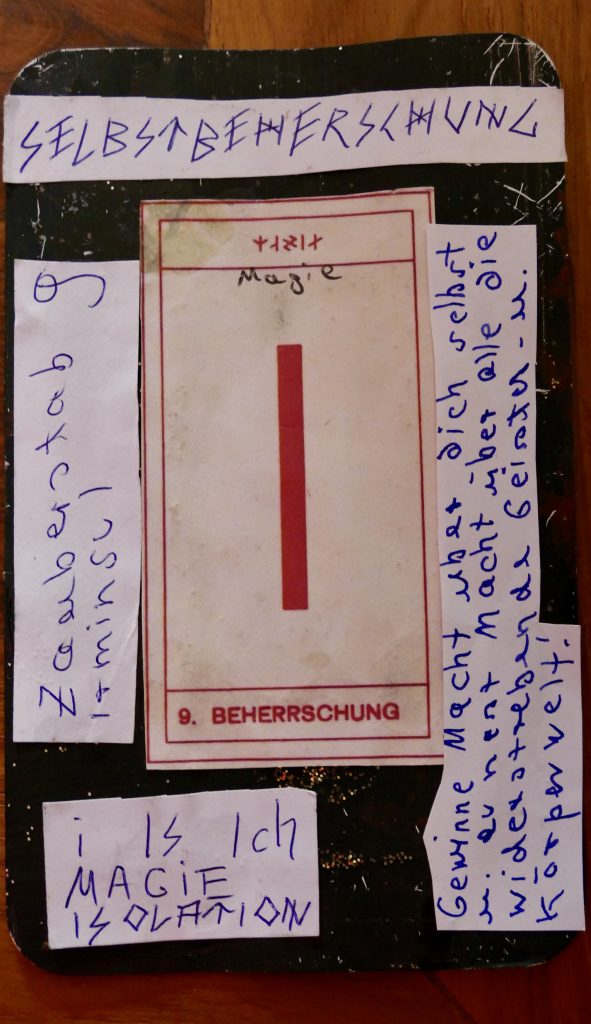 SELBSTBEHERSCHUNG
Magie
9. BEHERRSCHUNG
Zauberstab 9
Irminsul
Gewinne Macht über dich selbst
u. du hast Macht über alle die
widerstrebende Geister - u.
Körperwelt!
i IS Ich
MAGiE
ISOLATION